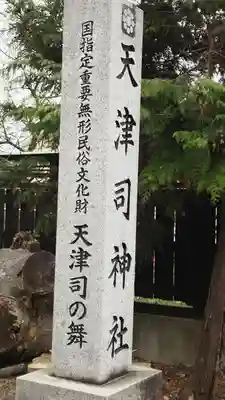 天津司神社
国指定重要無形民俗文化財
天津司の舞